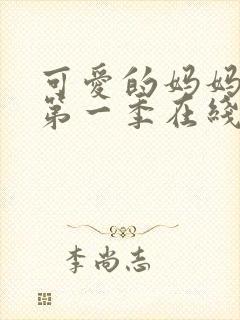 可爱的妈妈
第一季在线
李尚志